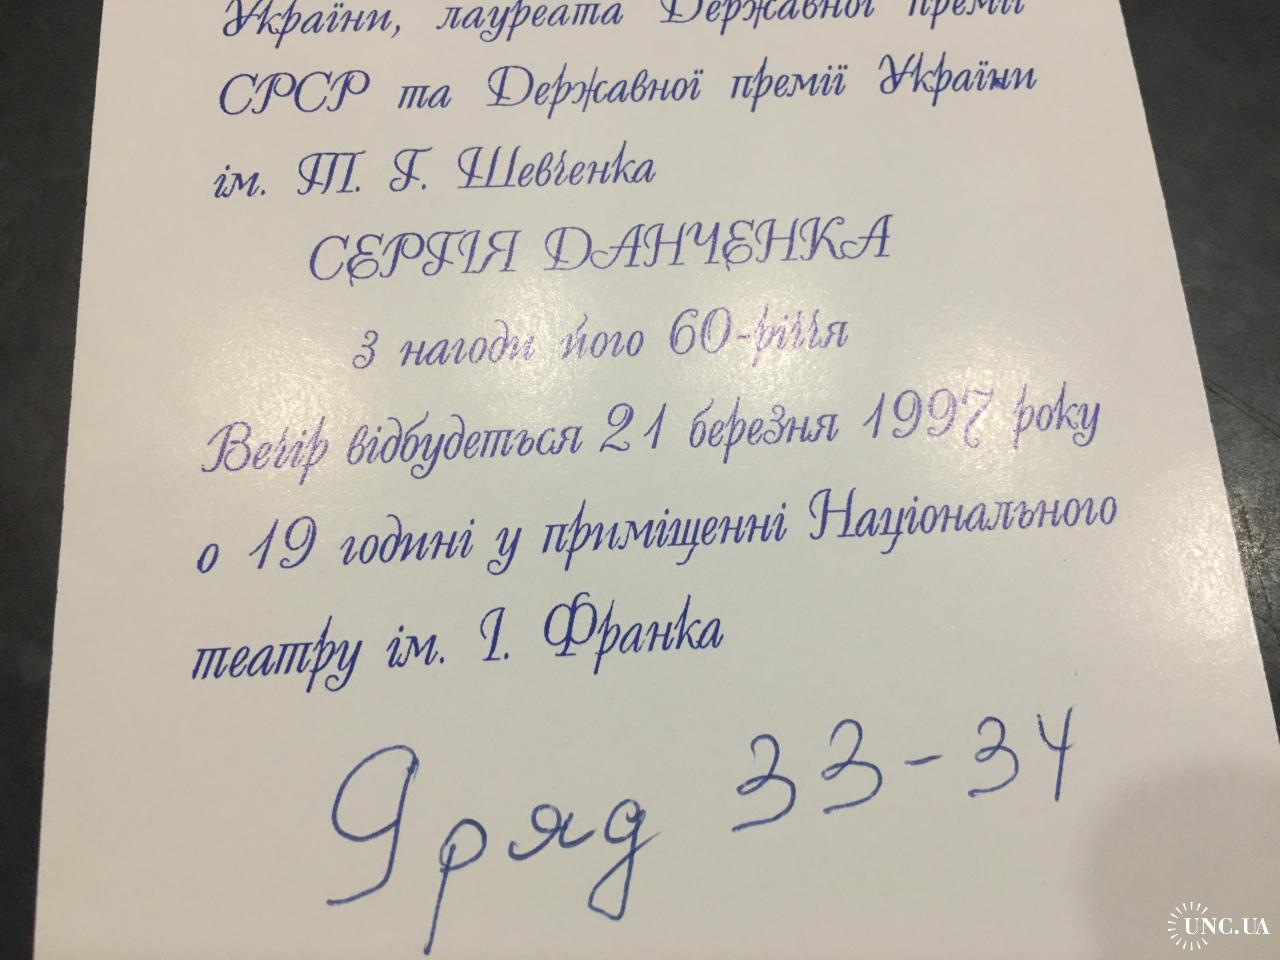 України, лауреата Державної премії
СРСР та Державної премії України
ім. Т. Г. Шевченка
СЕРГІЯ ДАНЧЕНКА
з нагоди його 60-річчя
Вечір відбудеться 21 березня 1997 року
о 19 годині у приміщенні Національного
театру ім. І. Франка
9 ряд 33-34
UNC.UA